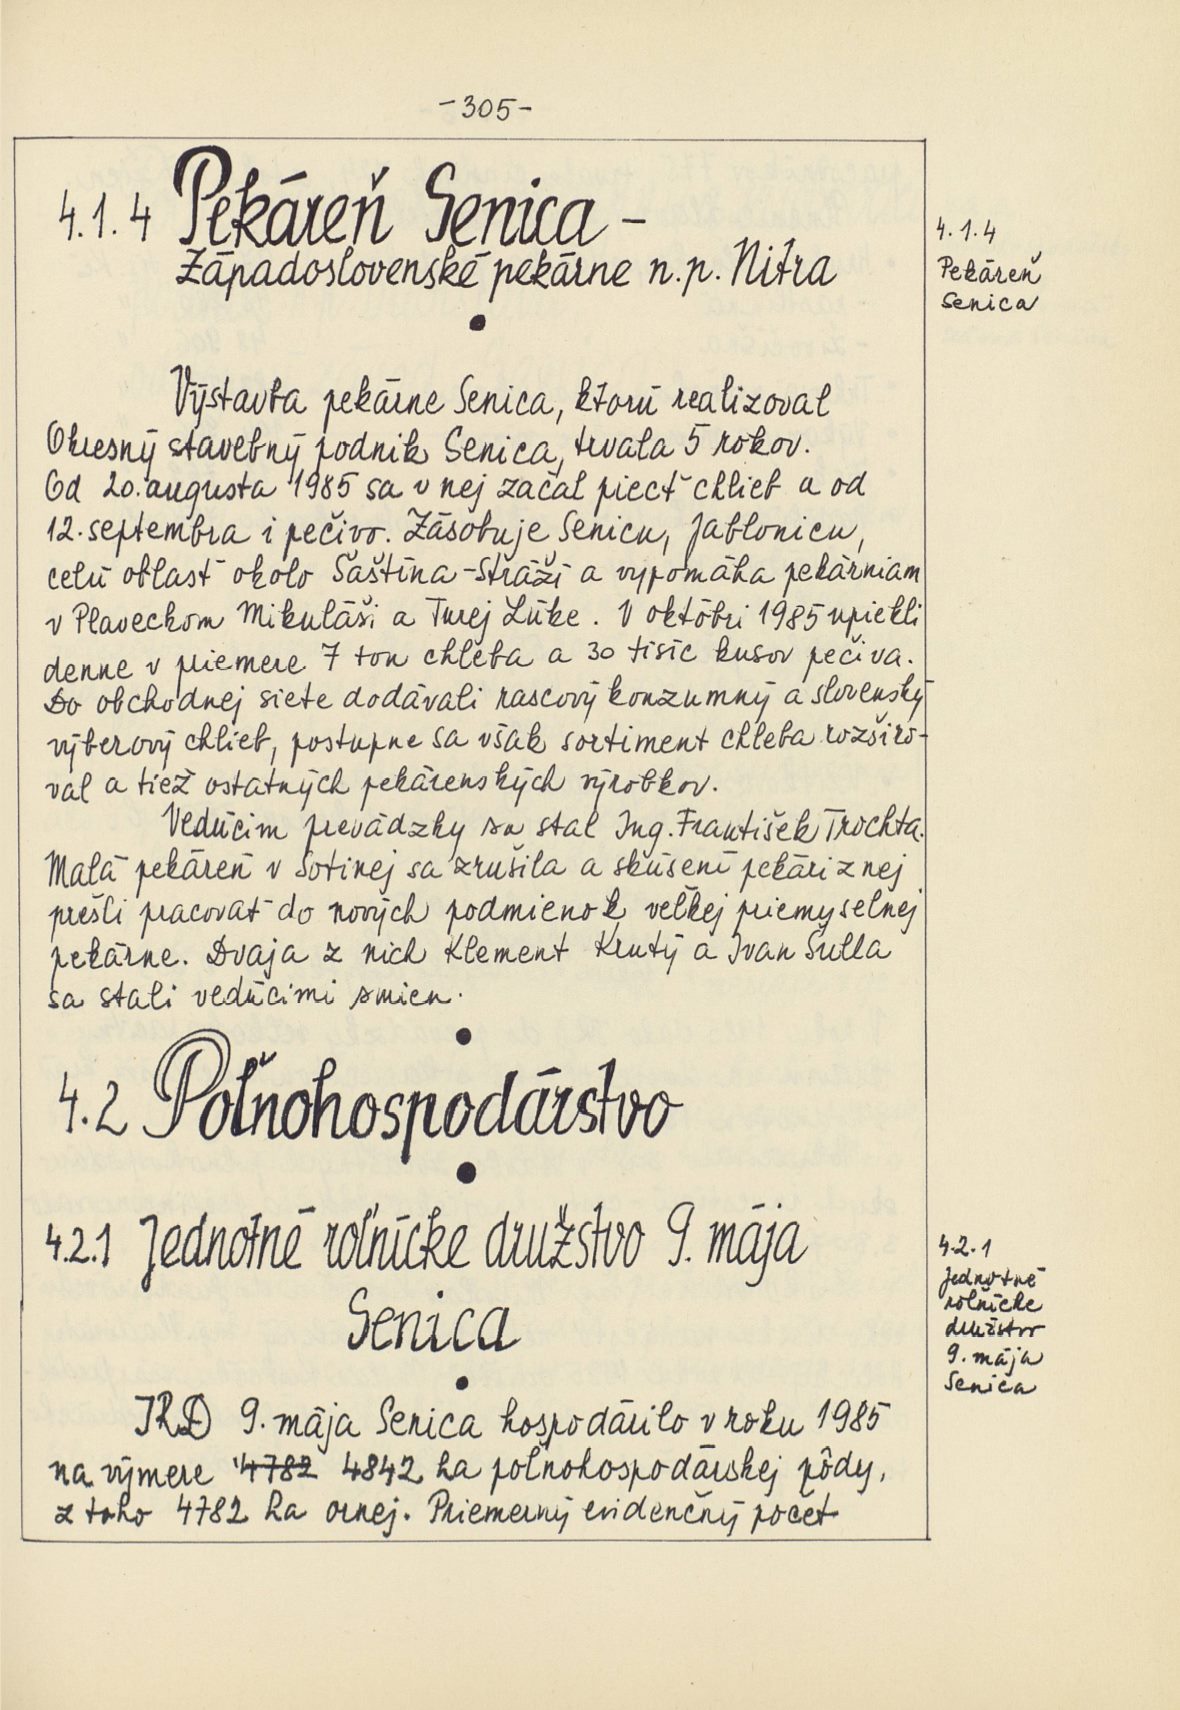 -305-
4.1.4 Pekáreň Senica -
Západoslovenské pekárne n.p. Nitra
4.1.4
Pekáreň
Senica
Výstavba pekárne Senica, ktorú realizoval
Okresný stavebný podnik Senica, trvala 5 rokov.
Od 20. augusta 1985 sa v nej začal piecť chlieb a od
12. septembra i pečivo. Zásobuje Senicu, Jablonicu,
celú oblasť okolo Šaštína-Stráží a vypomáha pekárniam
v Plaveckom Mikuláši a Turej Lúke. V októbri 1985 upiekli
denne v priemere 7 ton chleba a 30 tisíc kusov pečiva.
Do obchodnej siete dodávali rascový konzumný a slovenský
výberový chlieb, postupne sa však sortiment chleba rozširo-
val a tiež ostatných pekárenských výrobkov.
Vedúcim prevádzky sa stal Ing. František Trochta.
Malá pekáreň v Sotinej sa zrušila a skúsení pekári z nej
prešli pracovať do nových podmienok veľkej priemyselnej
pekárne. Dvaja z nich Klement Krutý a Ivan Sulla
sa stali vedúcimi smien.
4.2 Poľnohospodárstvo
4.2.1 Jednotné roľnícke družstvo 9. mája
Senica
4.2.1
Jednotné
roľnícke
družstvo
9. mája
Senica
JRD 9. mája Senica hospodárilo v roku 1985
na výmere 4782 4842 ha poľnohospodárskej pôdy,
z toho 4782 ha ornej. Priemerný evidenčný počet